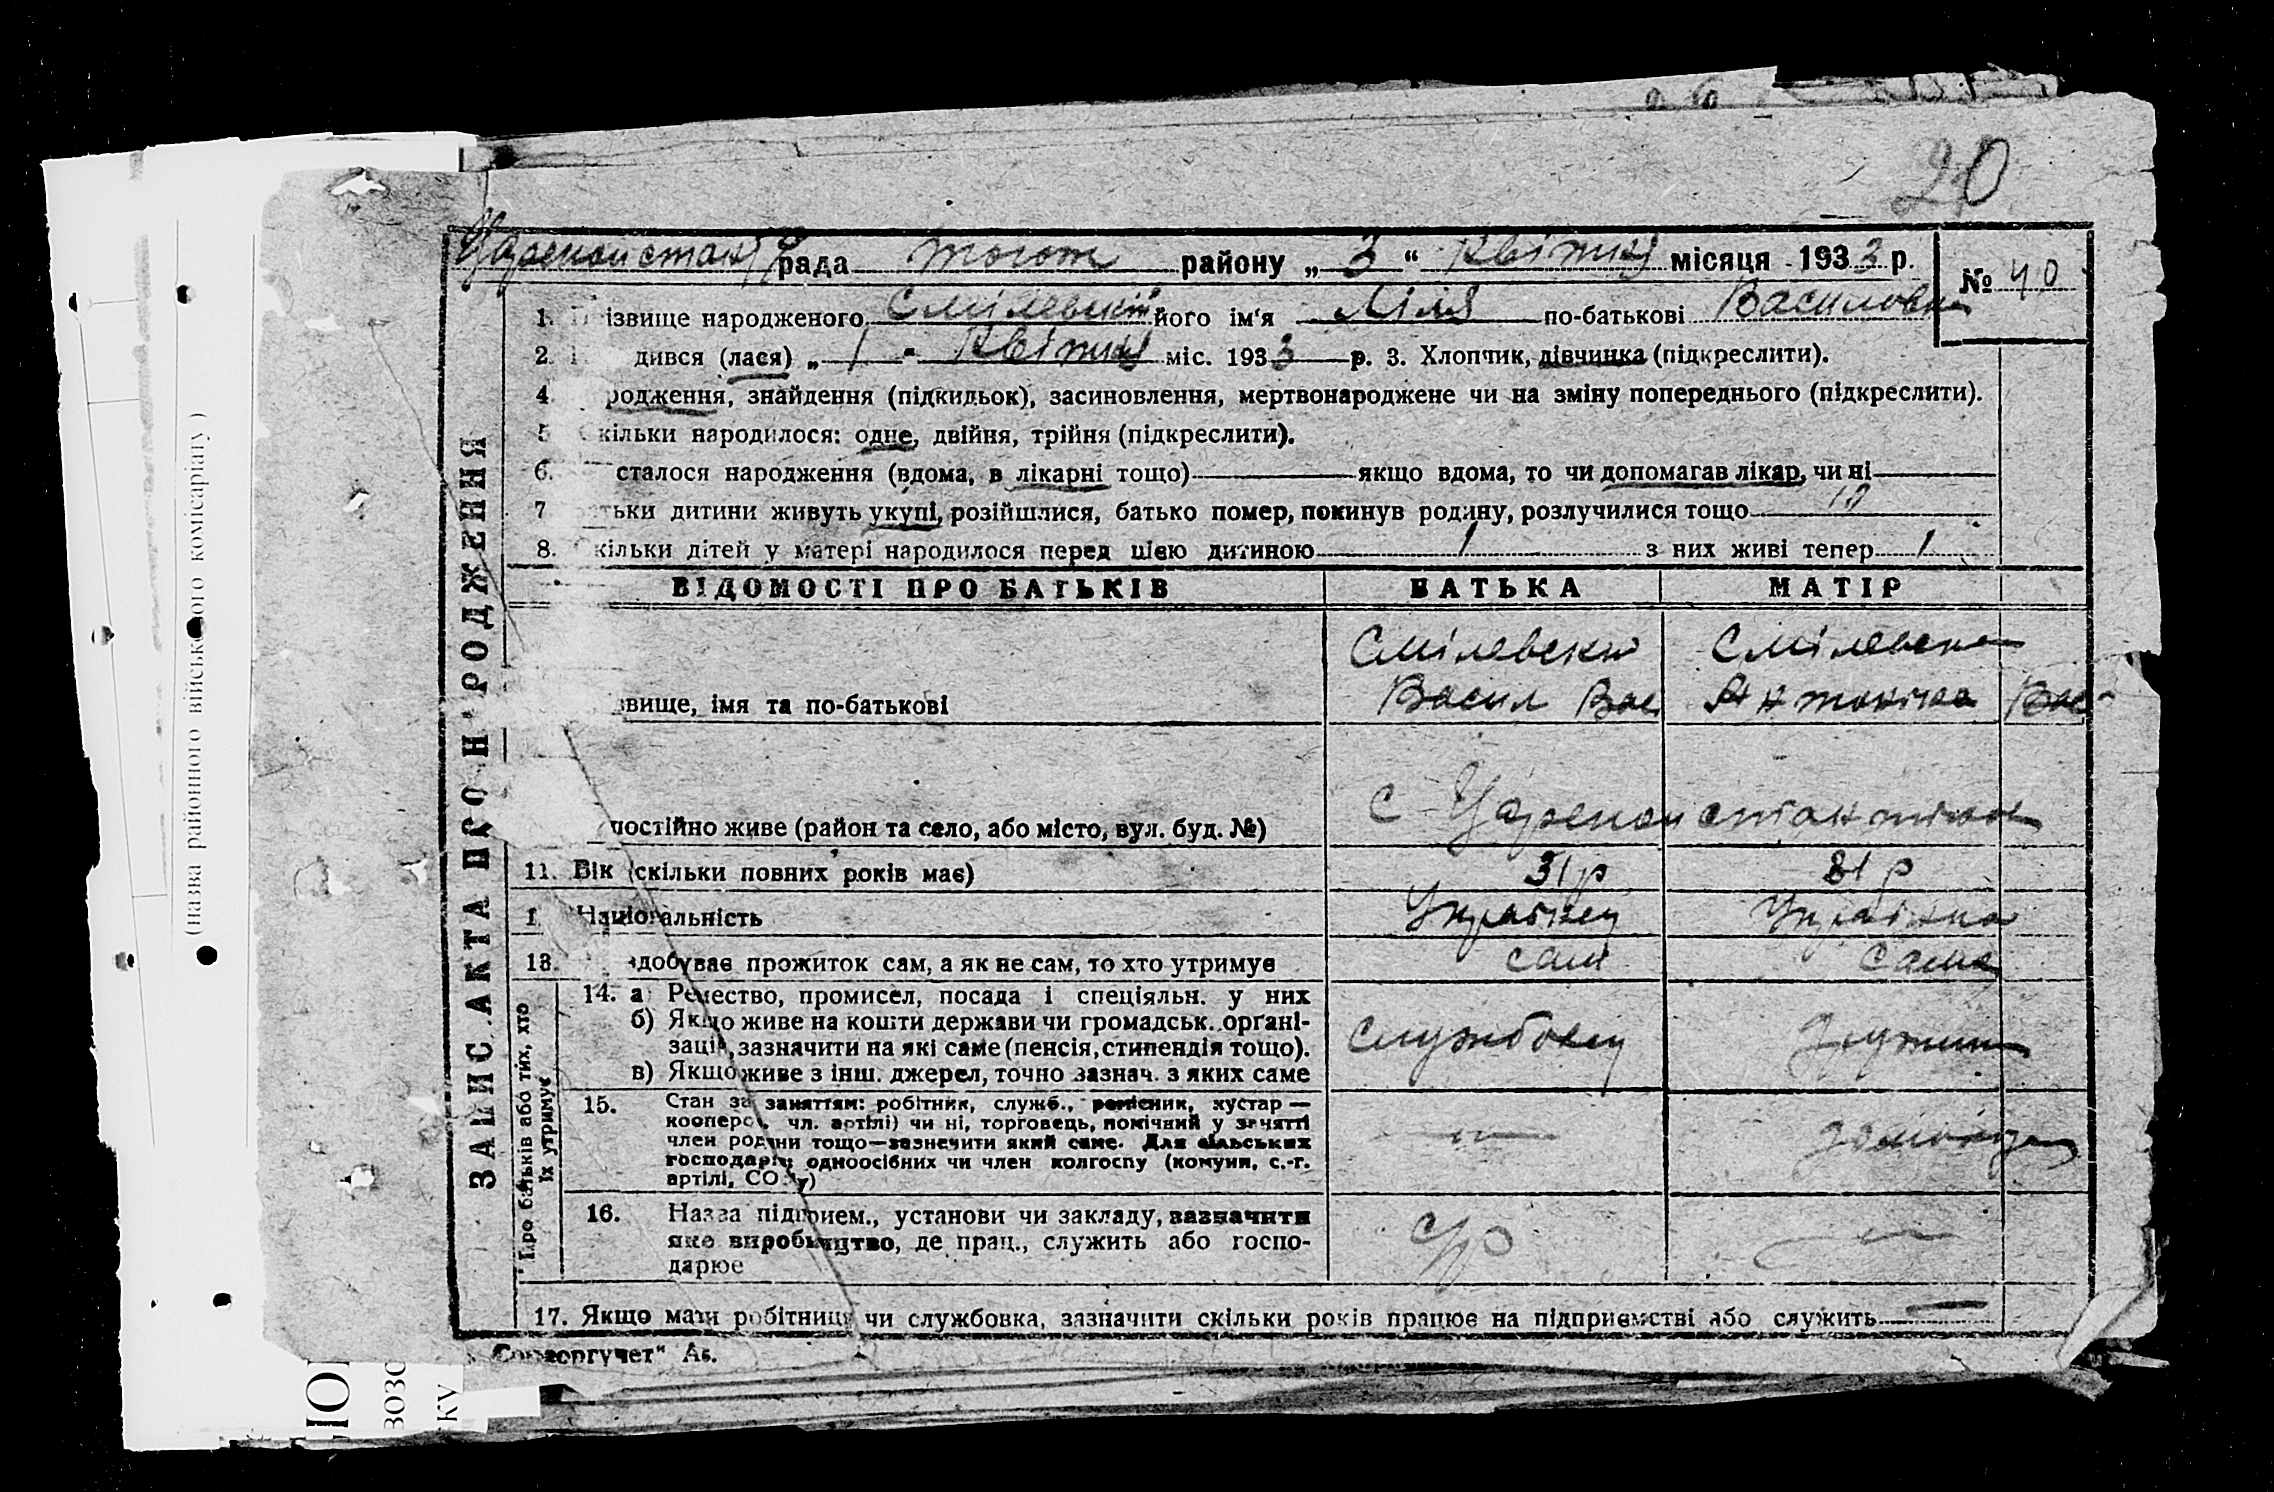 20
рада тогож району „ 3 “ Квітня місяця 1933 р.
№ 40
1. ізвище народженого його ім'я Ліля по-батькові Василовна
2. дився (лася) „ 1 “ Квітня міс. 1933 р. 3. Хлопчик, дівчинка (підкреслити).
4. родження, знайдення (підкидьок), засиновлення, мертвонароджене чи на зміну попереднього (підкреслити).
5 кільки народилося: одне, двійня, трійня (підкреслити).
6. сталося народження (вдома, в лікарні тощо) якщо вдома, то чи допомагав лікар, чи ні
7 тьки дитини живуть укупі, розійшлися, батько помер, покинув родину, розлучилися тощо
8. кільки дітей у матері народилося перед цією дитиною 1 з них живі тепер 1
ВІДОМОСТІ ПРО БАТЬКІВ БАТЬКА МАТІР
Смілевски Смілевска
вище, імя та по-батькові Васил Вас Антоніна Вас
постійно живе (район та село, або місто, вул. буд. №) с
11. Вік (скільки повних років має) 31р 31 р
1 Національність Українец Українка
13. здобуває прожиток сам, а як не сам, то хто утримує сам сама
Про батьків або тих, хто
їх утримує
14. а) Ремество, промисел, посада і спеціяльн. у них
б) Якщо живе на кошти держави чи громадськ. органі-
зацій, зазначити на які саме (пенсія, стипендія тощо). службовец
в) Якщо живе з інш. джерел, точно зазнач. з яких саме
15. Стан за заняттям: робітник, служб., ремісник, кустар —
кооперов. чл. артілі) чи ні, торговець, помічний у занятті
член родини тощо—зазначити який саме. Для сільських
господарів: одноосібних чи член колгоспу (комуни, с.-г.
артілі, СОЗ'у)
16. Назва підприєм., установи чи закладу, зазначити
яке виробництво, де прац., служить або госпо-
дарює
17. Якщо мати робітниця чи службовка, зазначити скільки років працює на підприємстві або служить
ЗАПИС АКТА ПРО НАРОДЖЕННЯ
(назва районного військового комісаріату)